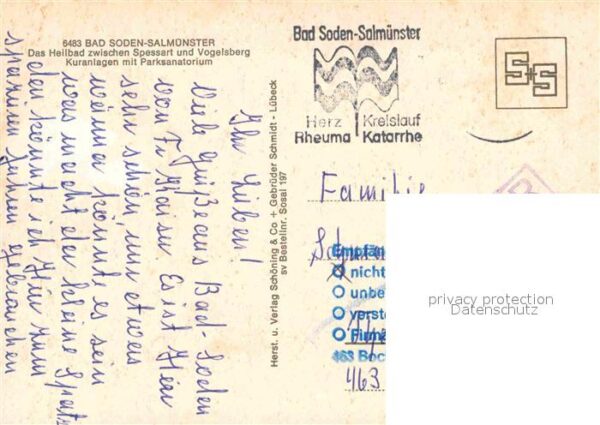 6483 BAD SODEN-SALMÜNSTER
Das Heilbad zwischen Spessart und Vogelsberg
Kuranlagen mit Parksanatorium
Ihr Lieben!
Viele Grüße aus Bad-Soden
von Fr Es ist hier
sehr schön, nur etwas
wärmer könnte es sein
was macht der kleine Spatz
den könnte ich hier zum
spazieren gehen gebrauchen
Herst. u. Verlag Schöning & Co + Gebrüder Schmidt - Lübeck
sv Bestellnr. Sosal 197
Bad Soden-Salmünster
Herz Kreislauf
Rheuma Katarrhe
S+S
Familie
Empfän
nicht
unbe
verst
Firma
463 Boc
463
privacy protection
Datenschutz